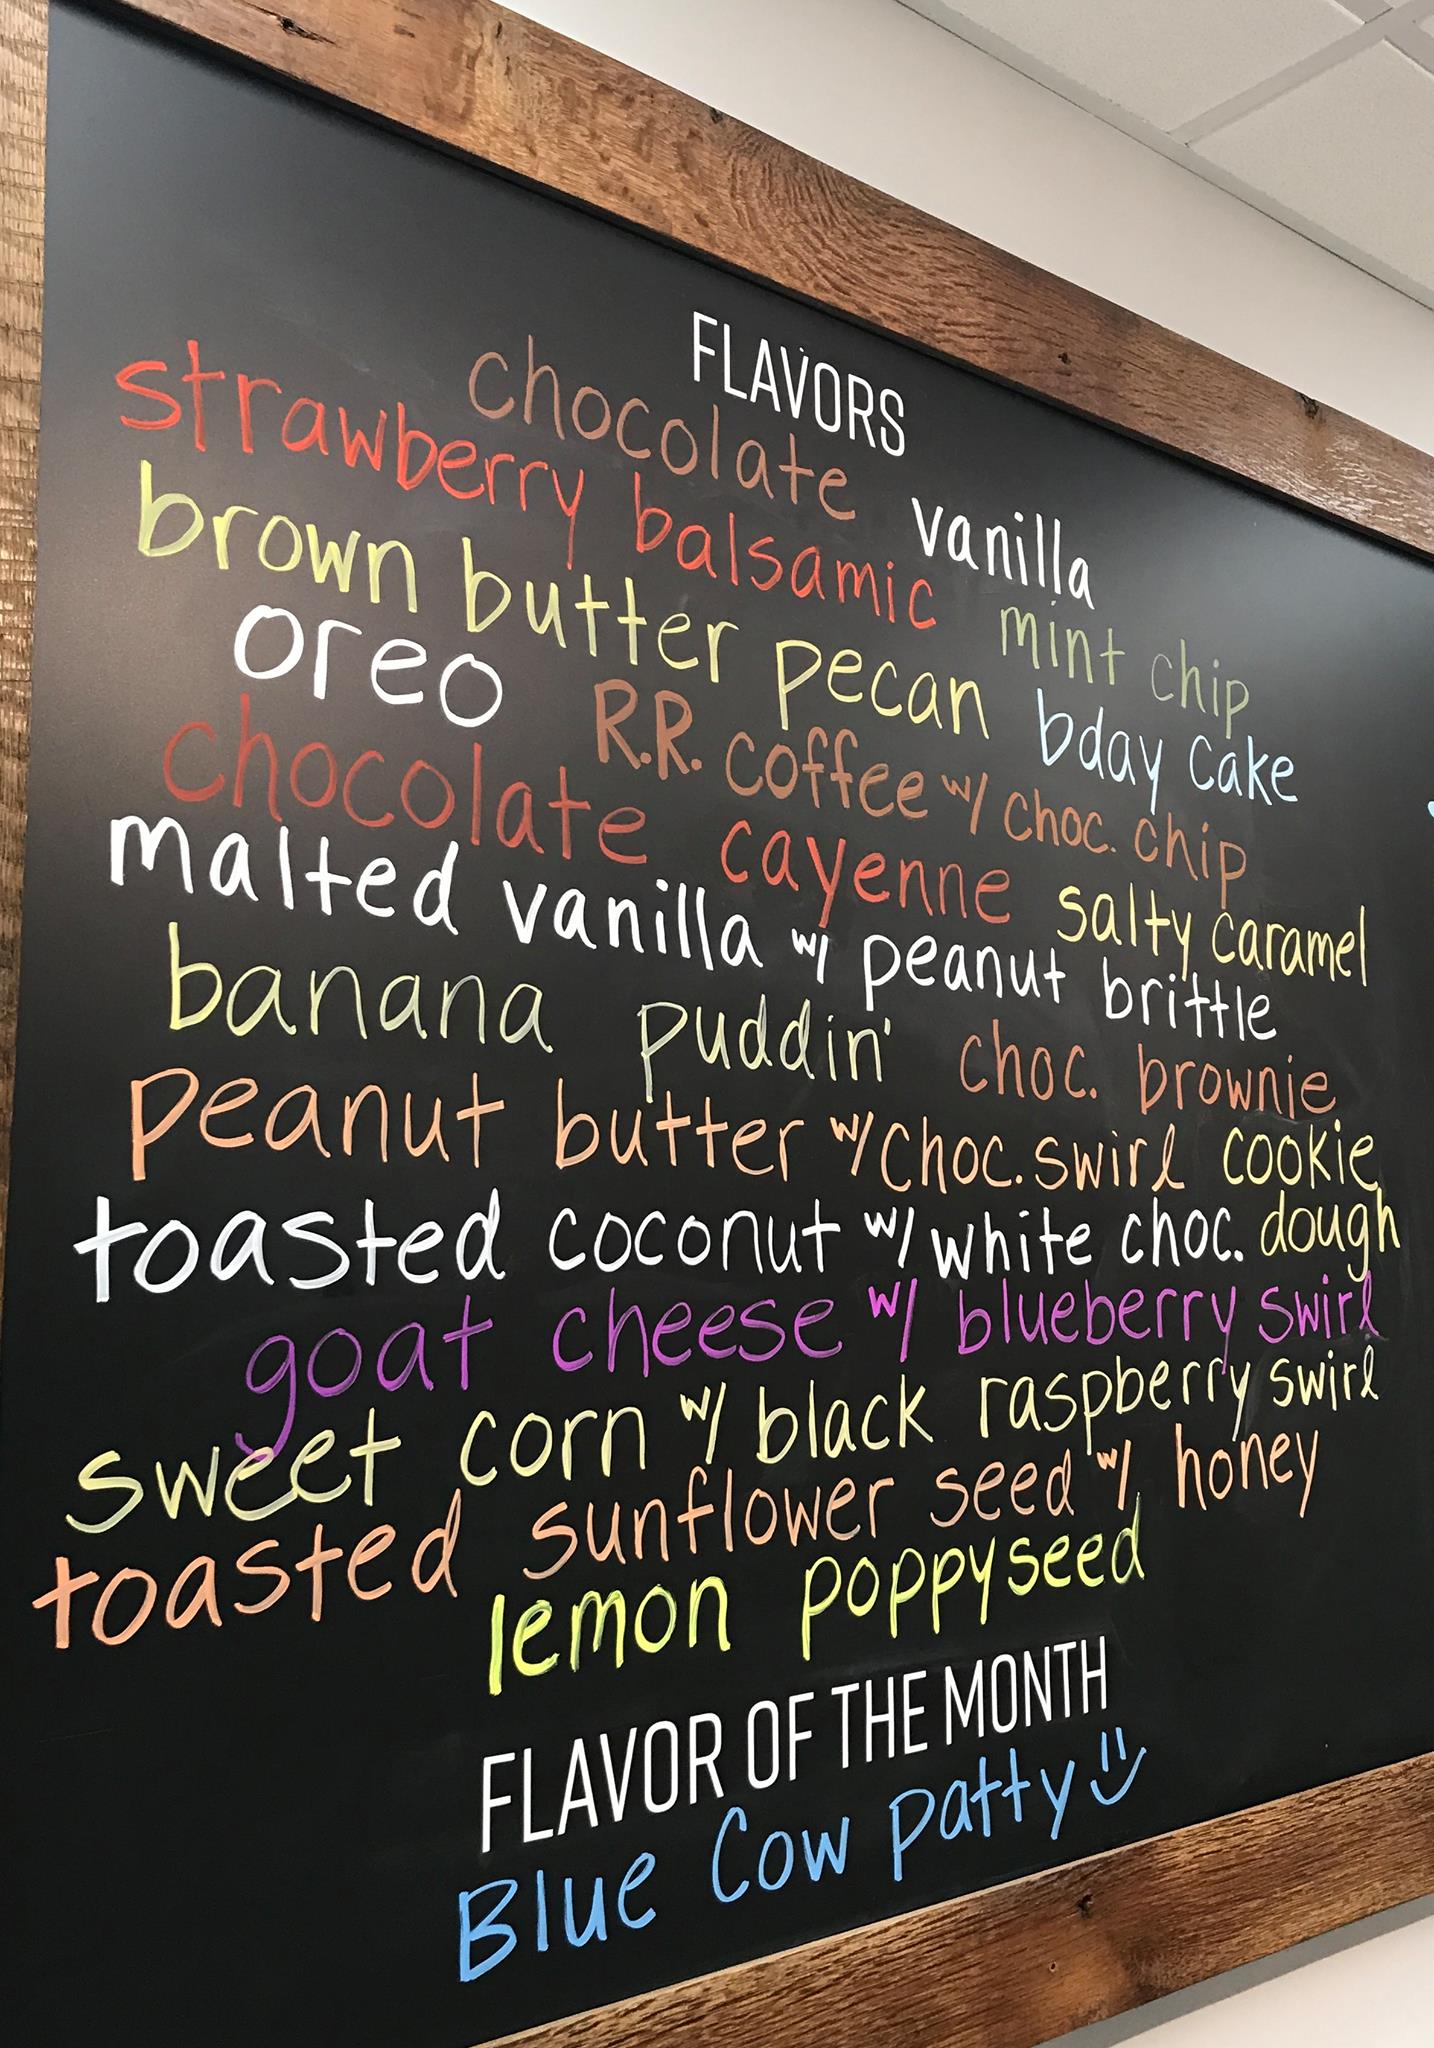 FLAVORS
chocolate vanilla
strawberry balsamic mint chip
brown butter pecan bday cake
oreo R.R. coffee w/ choc. chip
chocolate cayenne salty caramel
malted vanilla w/ peanut brittle
banana puddin' choc. brownie
peanut butter w/ choc. swirl cookie
toasted coconut w/ white choc. dough
goat cheese w/ blueberry swirl
sweet corn w/ black raspberry swirl
toasted sunflower seed w/ honey
lemon poppyseed
FLAVOR OF THE MONTH
Blue Cow Patty